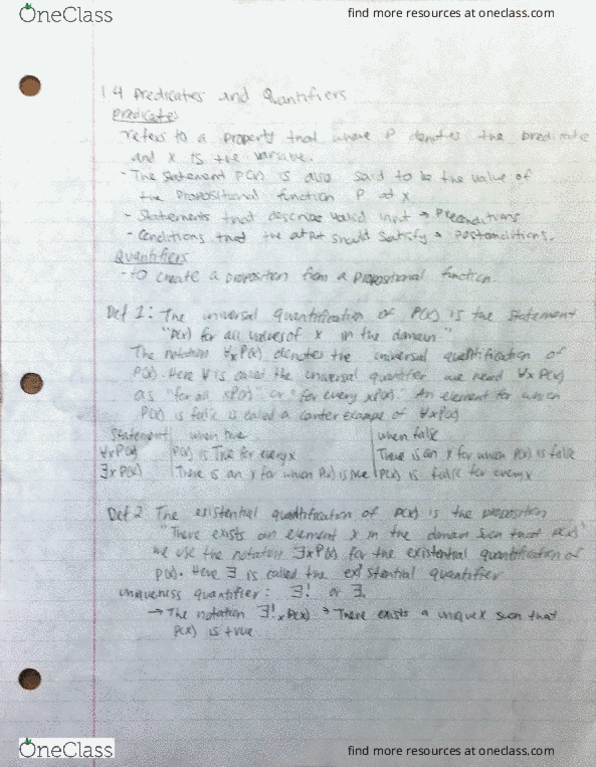 OneClass
find more resources at oneclass.com
1.4 Predicates and Quantifiers
Predicates
refers to a property that where P denotes the predicate
and x is the variable.
- The statement P(x) is also said to be the value of
the propositional function P at x
- Statements that describe valid input → Preconditions
- Conditions that the output should satisfy → postconditions.
Quantifiers
- to create a proposition from a propositional function.
Def 1: The universal quantification of P(x) is the statement
"P(x) for all values of x in the domain"
The notation ∀xP(x) denotes the universal quantification of
P(x). Here ∀ is called the universal quantifier we read ∀xP(x)
as "for all xP(x)" or "for every xP(x)" An element for which
P(x) is false is called a conter example of ∀xP(x)
Statement | when true | when false
∀xP(x) | P(x) is True for every x | There is an x for when P(x) is false
∃xP(x) | There is an x for when P(x) is true | P(x) is false for every x
Def 2 The existential quantification of P(x) is the proposition
"There exists an element x in the domain such that P(x)"
we use the notation ∃xP(x) for the existential quantification of
P(x). Here ∃ is called the existential quantifier
uniqueness quantifier: ∃! or ∃₁
→ The notation ∃!xP(x) → There exists a unique x such that
P(x) is true
OneClass
find more resources at oneclass.com